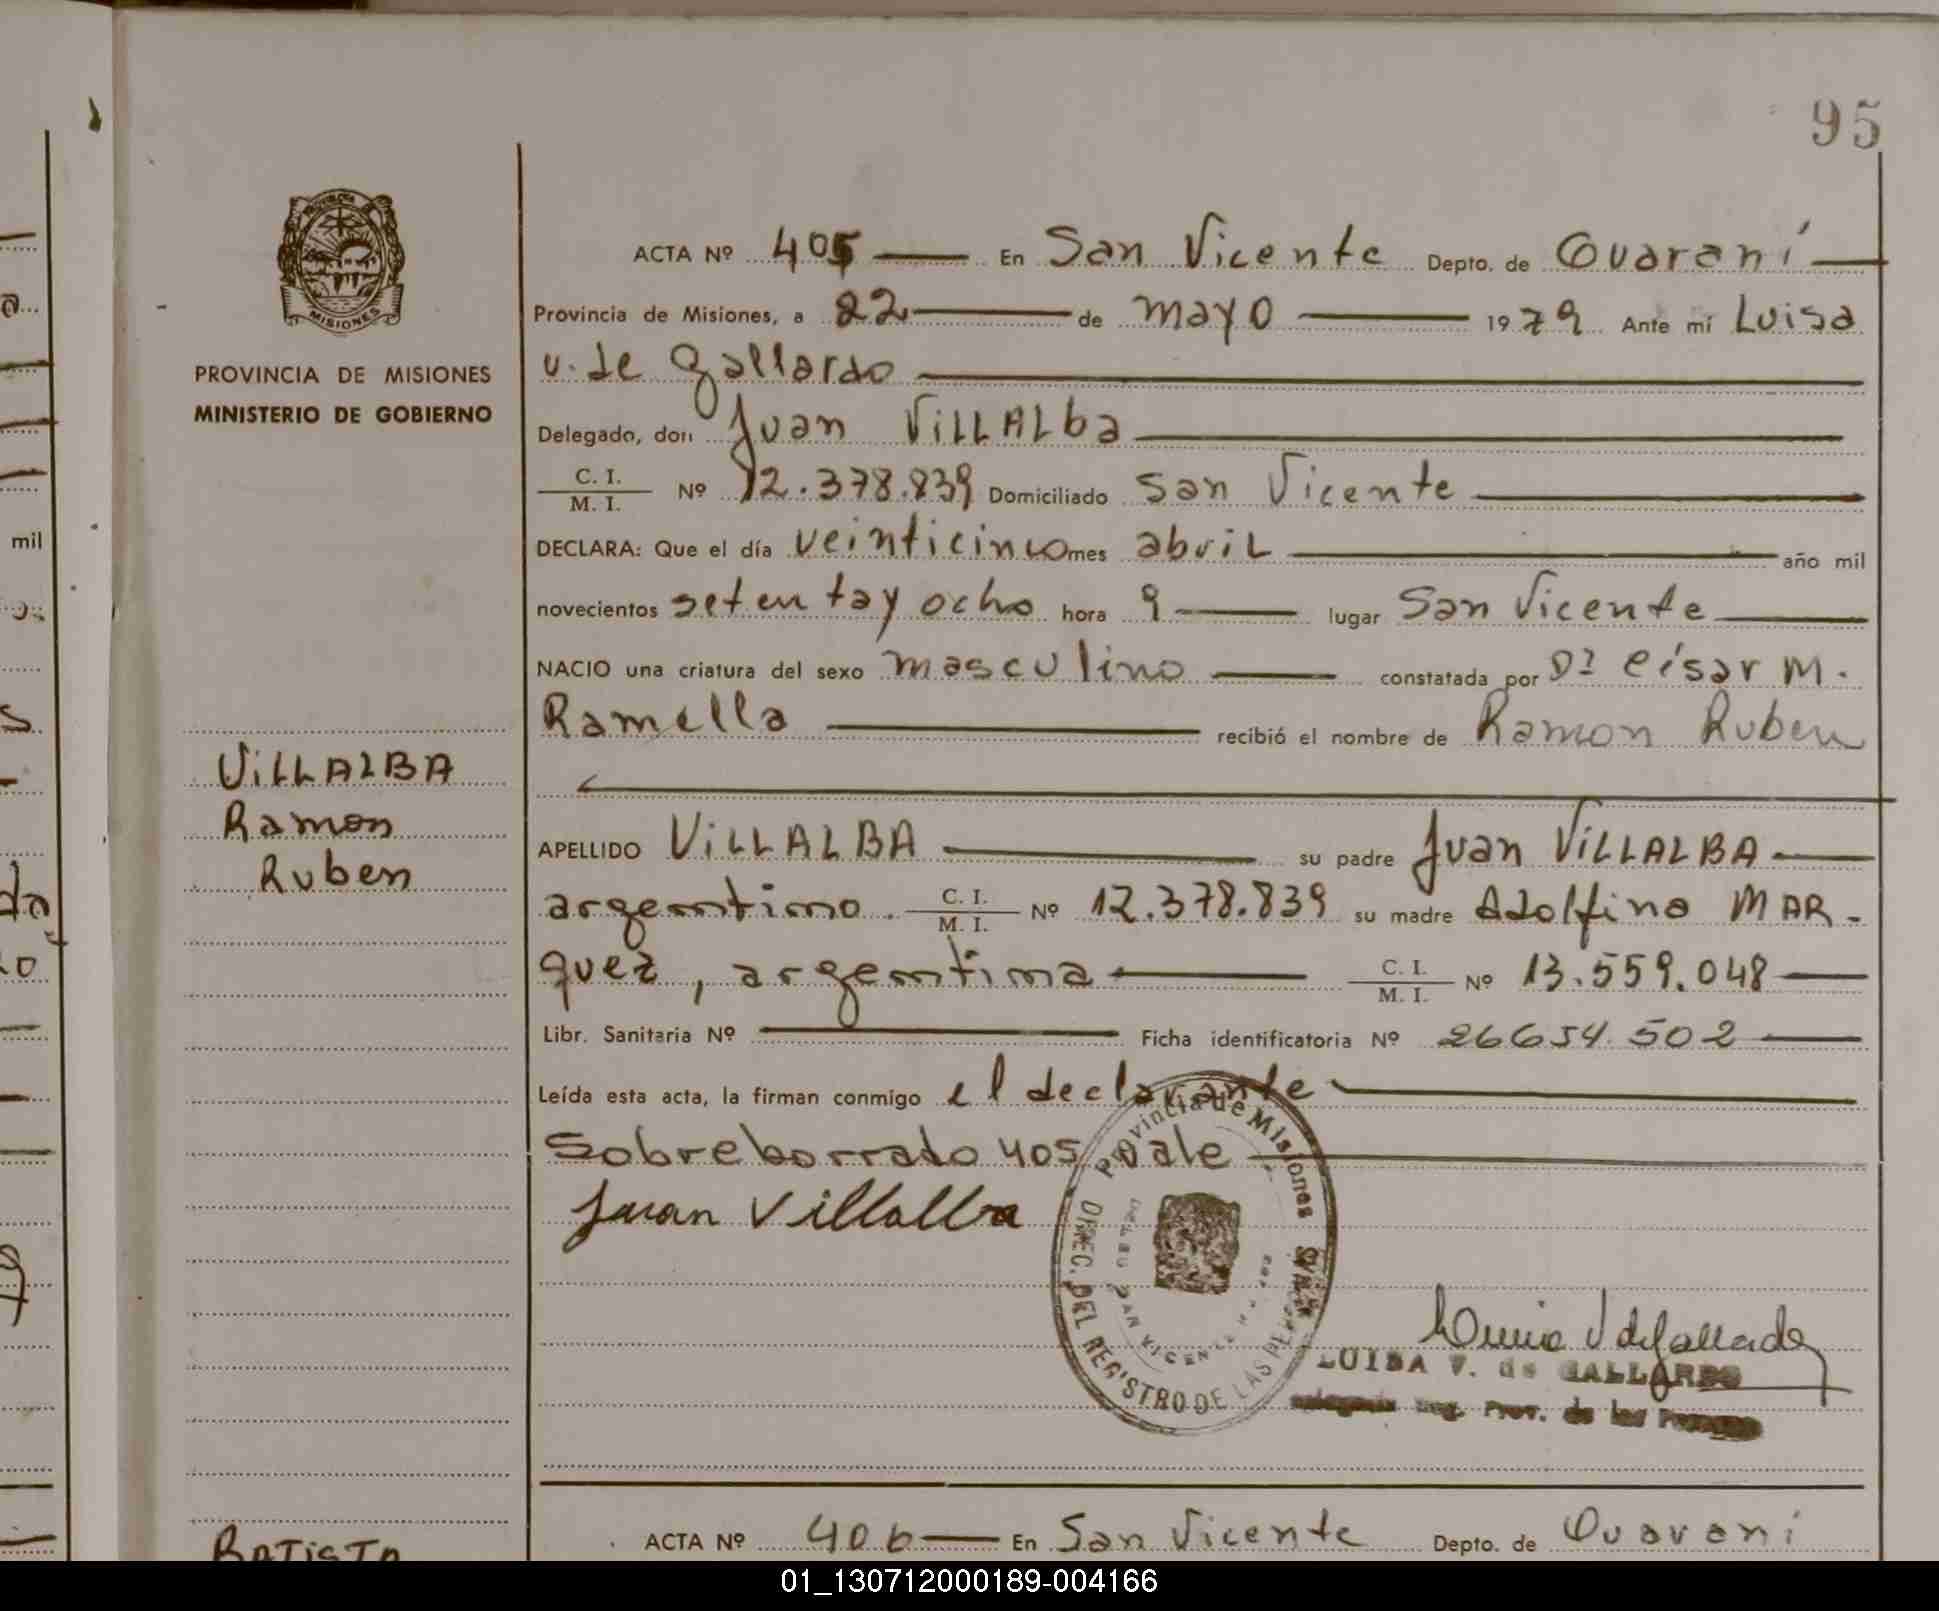 95
PROVINCIA DE MISIONES
MINISTERIO DE GOBIERNO
ACTA Nº 405 En San Vicente Depto. de Guaraní
Provincia de Misiones, a 22 de mayo 1979 Ante mí Luisa
V. de Gallardo
Delegado, don Juan ViLLALba
C. I. / M. I. Nº 12.378.839 Domiciliado San Vicente
DECLARA: Que el día veinticinco mes abriL año mil
novecientos setenta y ocho hora 9 lugar San Vicente
NACIO una criatura del sexo masculino constatada por Dº César M.
Ramella recibió el nombre de Ramon Ruben
APELLIDO ViLLALBA su padre Juan ViLLALBA
argentino. C. I. / M. I. Nº 12.378.839 su madre Adolfina MAR-
quez, argentina C. I. / M. I. Nº 13.559.048
Libr. Sanitaria Nº Ficha identificatoria Nº 26654.502
Leída esta acta, la firman conmigo el declarante
Sobreborrado 405 vale
Juan Villalba
ViLLALBA
Ramon
Ruben
MISIONES
Provincia de Misiones
DIREC. DEL REGISTRO DE LAS
SAN VICENTE
Luisa V de Gallardo
LUISA V. de GALLARDO
Reg. Prov. de las
mil
BATISTA
ACTA Nº 406 En San Vicente Depto. de Guarani
01_130712000189-004166